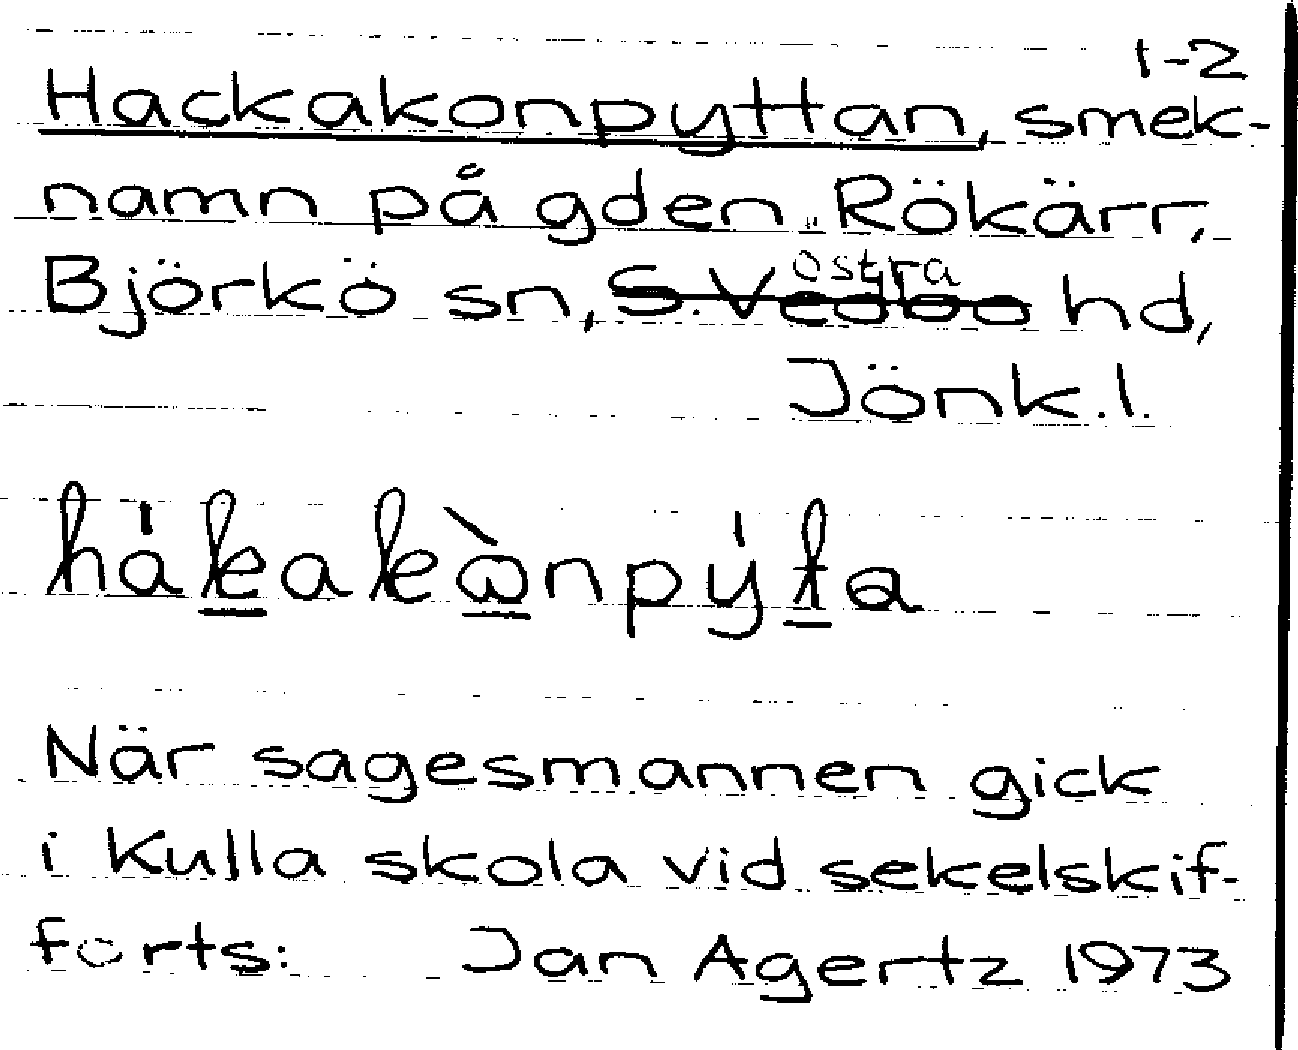 1-2
Hackakonpyttan, smek-
namn på gden Rökärr,
Björkö sn, S. Vedbo östra hd,
Jönk. l.
hákakònpýta
När sagesmannen gick
i Kulla skola vid sekelskif-
forts: Jan Agertz 1973